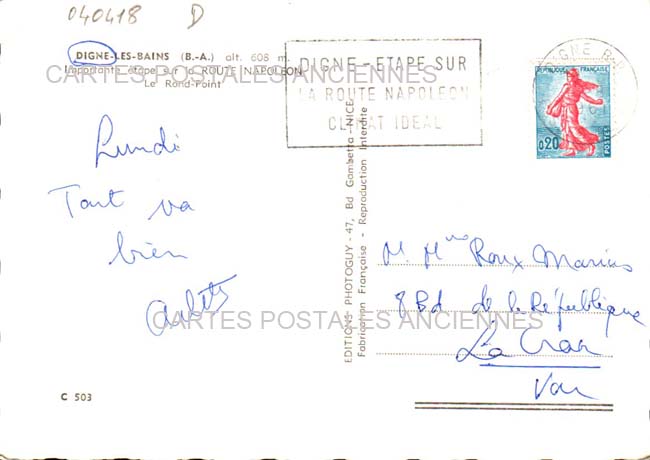 040418 D
DIGNE-LES-BAINS (B.-A.) alt. 608 m.
Importante étape sur la ROUTE NAPOLEON
Le Rond-Point
DIGNE - ETAPE SUR
LA ROUTE NAPOLEON
CLIMAT IDEAL
DIGNE B.
REPUBLIQUE FRANÇAISE
0,20
POSTES
CARTES POSTALES ANCIENNES
Lundi
Tout va
bien
EDITIONS PHOTOGUY - 47, Bd Gambetta - NICE
Fabrication Française - Reproduction Interdite
M. Mme Roux Marius
8 Bd de la République
La Crau
Var
CARTES POSTALES ANCIENNES
C 503
CARTES POSTALES ANCIENNES